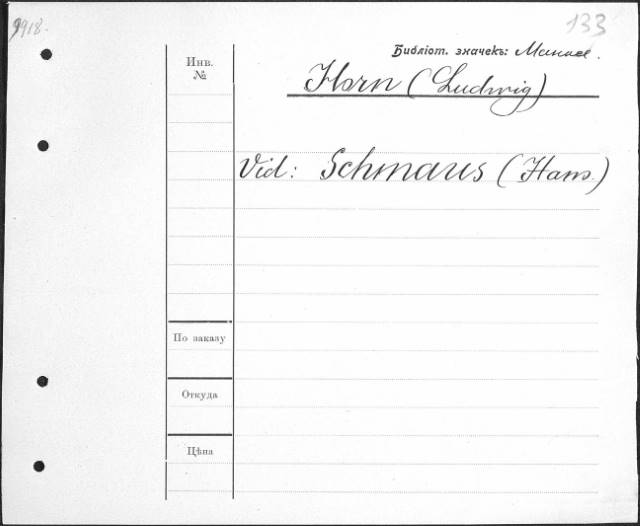 9918.
133
Библіот. значекъ:
Инв.
№
Horn (Ludwig)
Vid: Schmaus (Hans.)
По заказу
Откуда
Цѣна